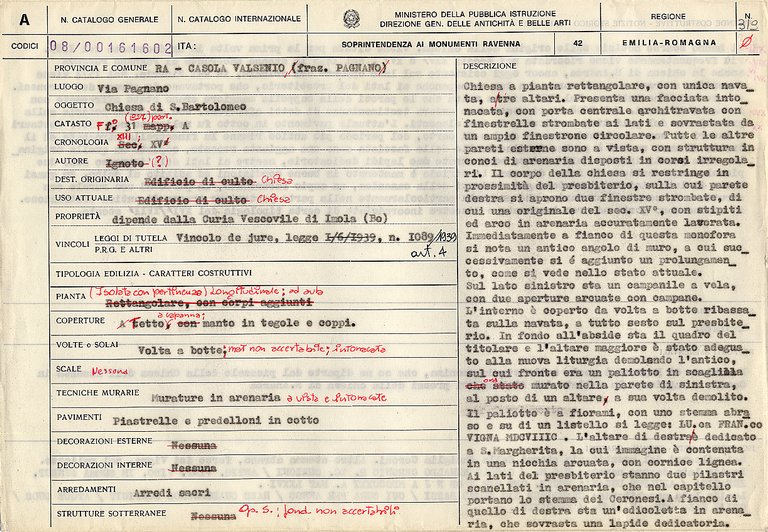 A
N. CATALOGO GENERALE
N. CATALOGO INTERNAZIONALE
MINISTERO DELLA PUBBLICA ISTRUZIONE
DIREZIONE GEN. DELLE ANTICHITÀ E BELLE ARTI
REGIONE
N.
CODICI
08/00161602
ITA:
SOPRINTENDENZA AI MONUMENTI RAVENNA
42
EMILIA-ROMAGNA
PROVINCIA E COMUNE RA - CASOLA VALSENIO (fraz. PAGNANO)
LUOGO Via Pagnano
OGGETTO Chiesa di S.Bartolomeo
CATASTO F° f, 31 mapp. A
CRONOLOGIA XIII Sec. XV
AUTORE Ignoto (?)
DEST. ORIGINARIA Edificio di culto Chiesa
USO ATTUALE Edificio di culto Chiesa
PROPRIETÀ dipende dalla Curia Vescovile di Imola (Bo)
VINCOLI LEGGI DI TUTELA Vincolo de jure, legge 1/6/1939, n. 1089/1939
P.R.G. E ALTRI art. 4
TIPOLOGIA EDILIZIA - CARATTERI COSTRUTTIVI
PIANTA (Isolata con pertinenza) Longitudinale; ad aula
Rettangolare, con corpi aggiunti
COPERTURE A tetto, a capanna; con manto in tegole e coppi.
VOLTE o SOLAI Volta a botte; mat non accertabile; intonacata
SCALE Nessuna
TECNICHE MURARIE Murature in arenaria a vista e intonacate
PAVIMENTI Piastrelle e predelloni in cotto
DECORAZIONI ESTERNE Nessuna
DECORAZIONI INTERNE Nessuna
ARREDAMENTI Arredi sacri
STRUTTURE SOTTERRANEE Nessuna Op. S.; fond. non accertabili
DESCRIZIONE
Chiesa a pianta rettangolare, con unica nava_
ta, a tre altari. Presenta una facciata into_
nacata, con porta centrale architravata con
finestrelle strombate ai lati e sovrastata da
un ampio finestrone circolare. Tutte le altre
pareti esterne sono a vista, con struttura in
conci di arenaria disposti in corsi irregola_
ri. Il corpo della chiesa si restringe in
prossimità del presbiterio, sulla cui parete
destra si aprono due finestre strombate, di
cui una originale del sec. XV°, con stipiti
ed arco in arenaria accuratamente lavorata.
Immediatamente a fianco di questa monofora
si nota un antico angolo di muro, a cui suc_
cessivamente si é aggiunto un prolungamen_
to, come si vede nello stato attuale.
Sul lato sinistro sta un campanile a vela,
con due aperture arcuate con campane.
L'interno è coperto da volta a botte ribassa_
ta sulla navata, a tutto sesto sul presbite_
rio. In fondo all'abside sta il quadro del
titolare e l'altare maggiore è stato adegua_
to alla nuova liturgia demolando l'antico,
sul cui fronte era un paliotto in scagliola
che stato ora murato nella parete di sinistra,
al posto di un altare, a sua volta demolito.
Il paliotto è a fiorami, con uno stemma abra_
so e su di un listello si legge: LU.ca FRAN.co
VIGNA MDCVIIIC . L'altare di destra è dedicato
a S.Margherita, la cui immagine è contenuta
in una nicchia arcuata, con cornice lignea.
Ai lati del presbiterio stanno due pilastri
scanellati in arenaria, che nel capitello
portano lo stemma dei Ceronesi.A fianco di
quello di destra sta un'edicoletta in arena_
ria, che sovrasta una lapide dedicatoria.